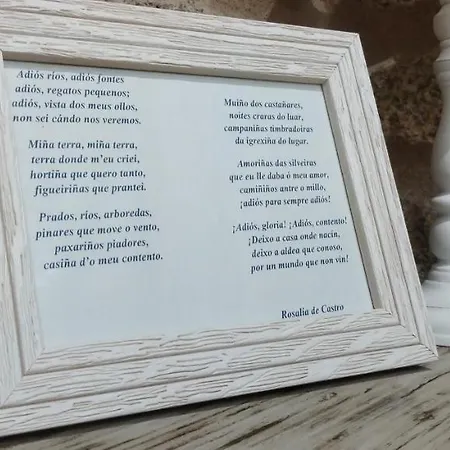 Adiós ríos, adiós fontes
adiós, regatos pequenos;
adiós, vista dos meus ollos,
non sei cándo nos veremos.
Miña terra, miña terra,
terra donde m'eu criei,
hortiña que quero tanto,
figueiriñas que prantei.
Prados, ríos, arboredas,
pinares que move o vento,
paxariños piadores,
casiña d'o meu contento.
Muiño dos castañares,
noites craras do luar,
campaniñas timbradoiras
da igrexiña do lugar.
Amoriñas das silveiras
que eu lle daba ó meu amor,
camiñiños antre o millo,
¡adiós para sempre adiós!
¡Adiós, gloria! ¡Adiós, contento!
¡Deixo a casa onde nacín,
deixo a aldea que conoso,
por un mundo que non vin!
Rosalia de Castro